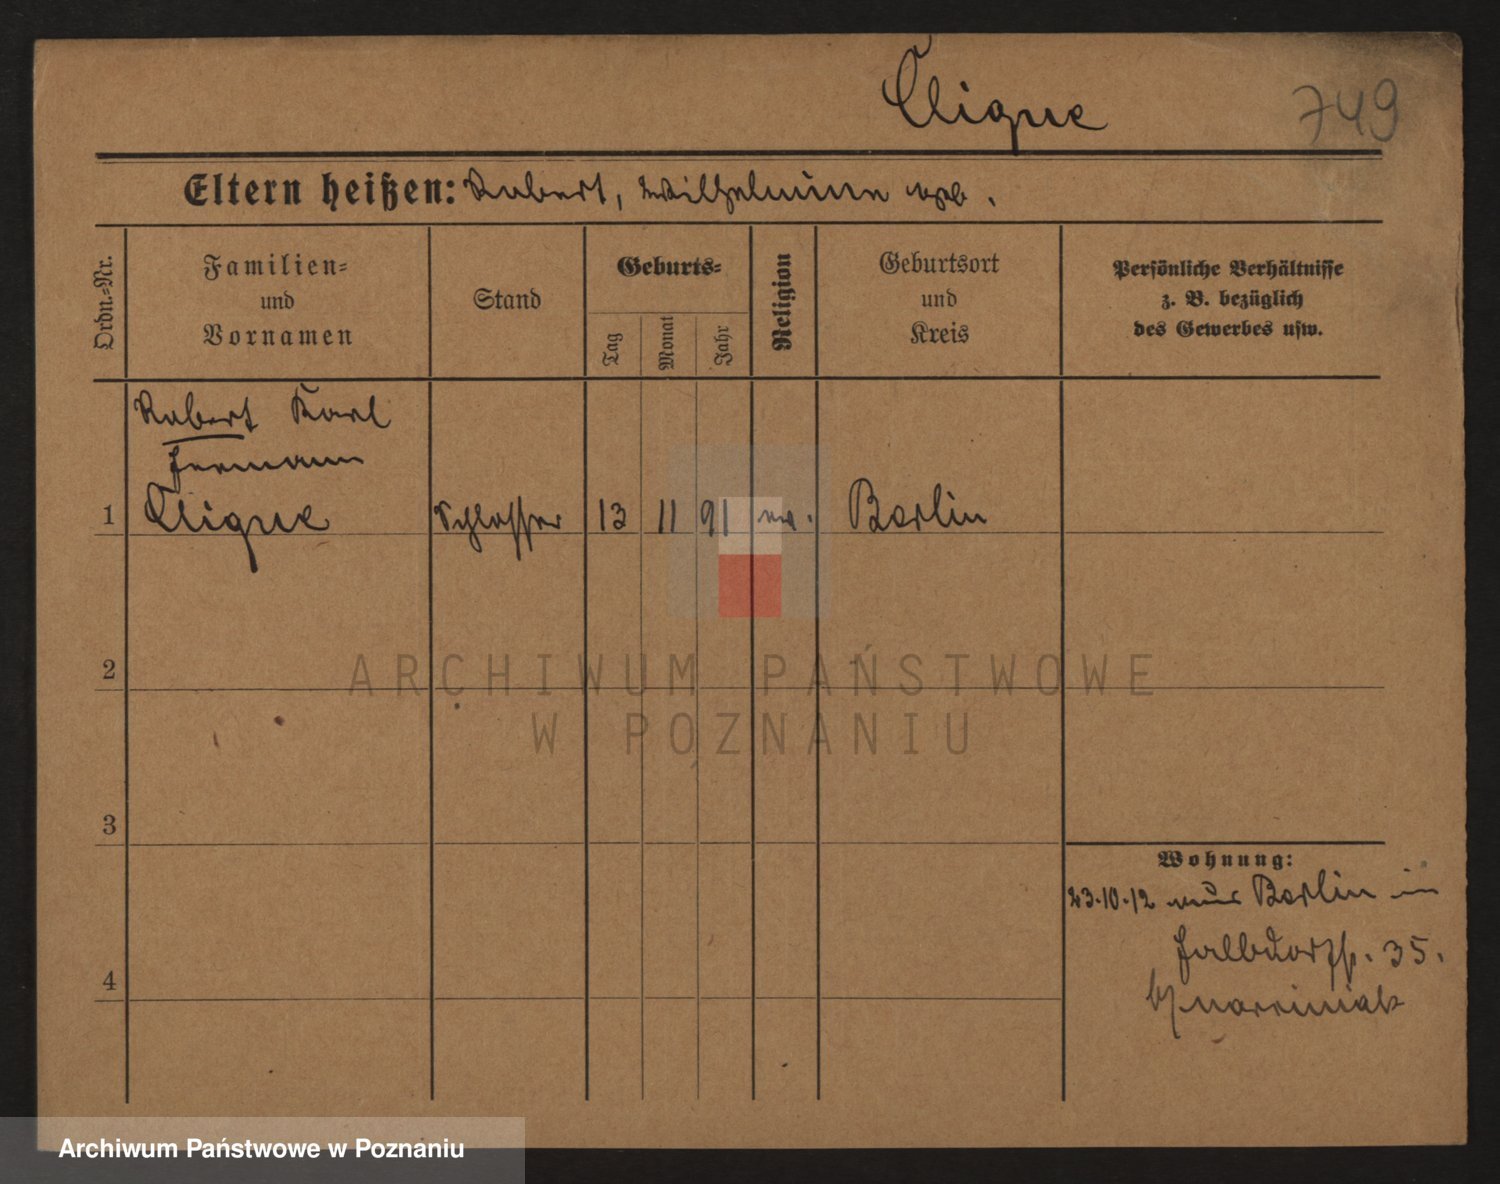 Clique
749
Eltern heißen: Robert, Wilhelmine geb.
Ordn.-Nr.
Familien-
und
Vornamen
Stand
Geburts-
Tag
Monat
Jahr
Religion
Geburtsort
und
Kreis
Persönliche Verhältnisse
z. B. bezüglich
des Gewerbes usw.
Robert Karl
Hermann
1 Clique Schlosser 13 11 91 ev. Berlin
2
ARCHIWUM PAŃSTWOWE
W POZNANIU
3
Wohnung:
23.10.12 aus Berlin in
35.
4
Archiwum Państwowe w Poznaniu